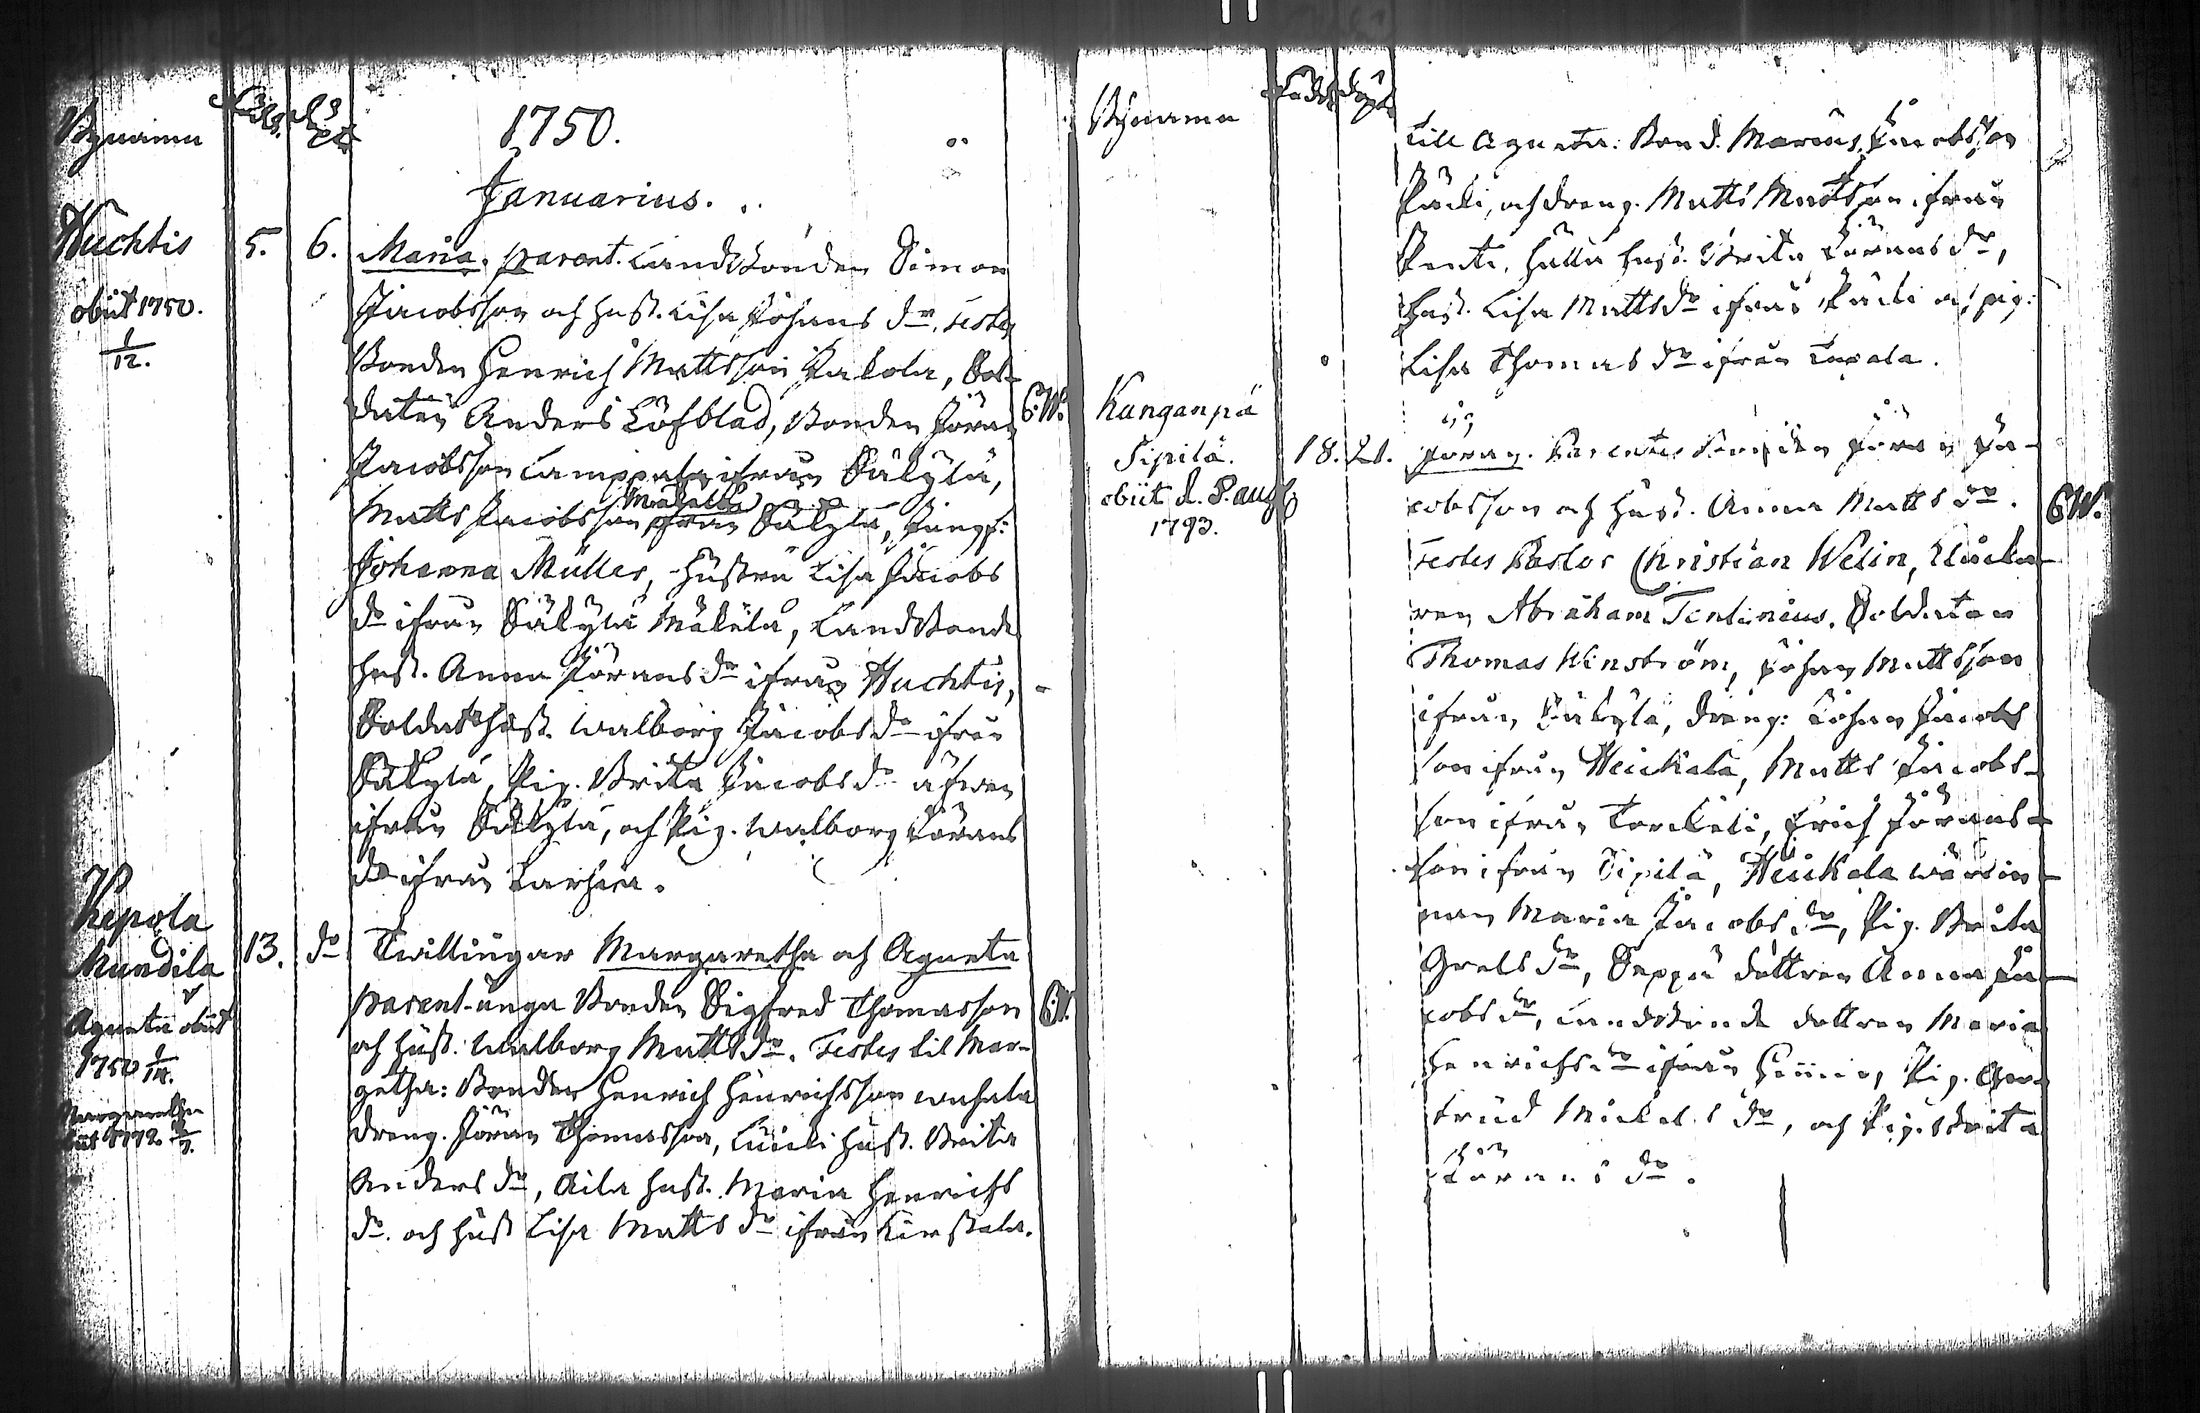 Bynamn
Födde
Döpt
1750.
Januarius.
Huchtis
5.
6.
obiit 1750.
1/12.
Maria. parent. Landbonden Simon
Jacobsson och hust. Lisa Johans dr. Testes
Bonden Henrich Mattsson Kakola, Sol-
daten Anders Löfblad, Bonden Jöran
Jacobsson ifrån Säkylä,
Mäkelä
Matts Jacobsson ifrån Säkylä, Jungf:
Johanna Müller, Hustru Lisa Jacobs
dr ifrån Säkylä Mäkelä, Landbonde
hust. Anna Jörans dr ifrån Huchtis,
Soldat hust. Walborg Jacobs dr ifrån
Säkylä, Pig. Brita Jacobs dr äfwen
ifrån Säkylä, och Pig. Walborg Jörans
dr ifrån
6W.
Kepola
Mundila
13.
do
Agneta obiit
1750
Margaretha
obiit 1772
Twillingar Margaretha och Agneta
parent. unga Bonden Sigfred Thomasson
och hust. Walborg Matts dr. Testes til Mar-
getha: Bonden Henrich Henrichsson
dreng. Jöran Thomasson, hust. Brita
Anders dr, Aila hust. Maria Henrichs
dr. och hust Lisa Matts dr ifrån
6W.
Bynamn
Födde
Döpte
till Agneta: Bond. Marcus Jacobsson
och dreng. Matts Mattsson ifrån
hust. Brita Jörans dr,
hust. Lisa Matts dr ifrån pig:
Lisa Thomas dr ifrån
Kanganpä
Sipilä.
obiit d. 8. aug
1793.
18.
21.
Jöran. Parentes Bonden Jöran Ja-
cobsson och hust. Anna Matts dr.
Testes Pastor Christian Welin, Klocka-
ren Abraham Tentenius. Soldaten
Thomas Winström, Johan Mattsson
ifrån Säkylä, dreng: Johan Jacobs
son ifrån Heickala, Matts Jacobs-
son ifrån Torckeli, Erich Jörans-
son ifrån Sipilä, Heickala wärdin-
nan Maria Jacobs dr, Pig. Brita
Grels dr, Seppä dottren Anna Ja-
cobs dr, Landbonde dottren Maria
Henrichs dr ifrån Pig. Ger-
trud Mickels dr, och Pig. Brita
Jörans dr.
6W.